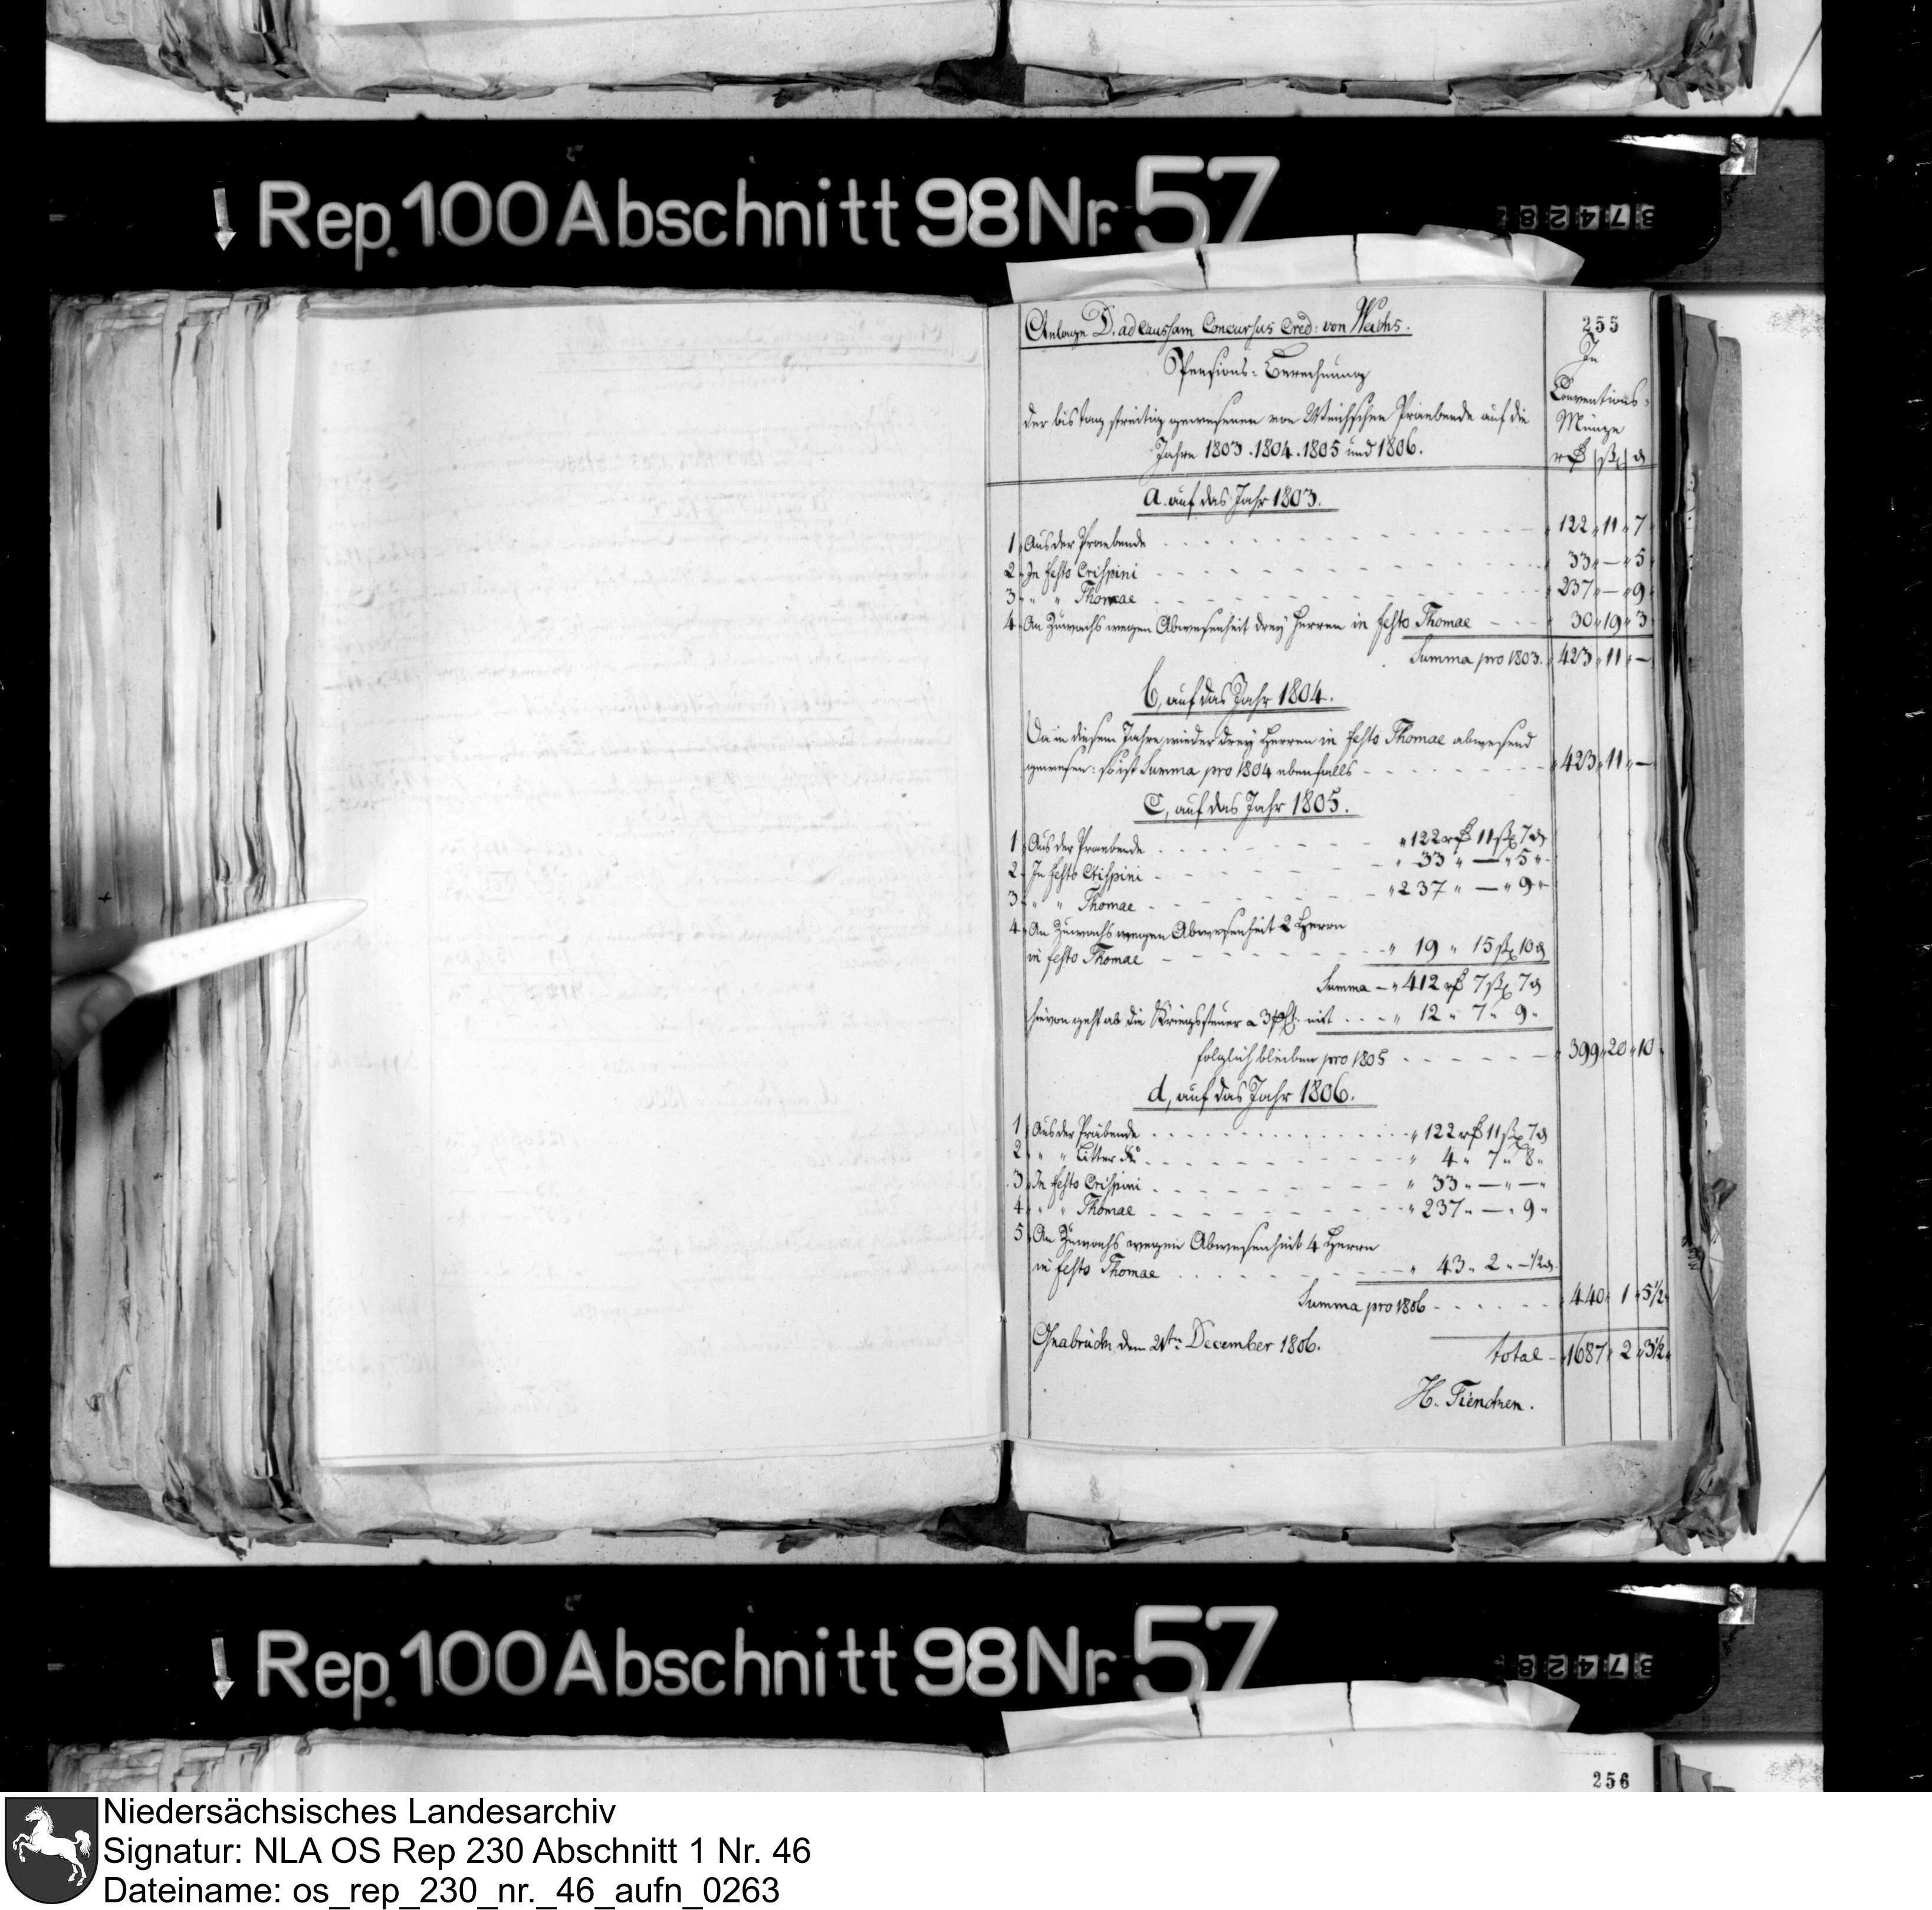 Rep. 100 Abschnitt 98 Nr. 57
37428
255
Anlage D. ad Caussam Concursus Cred: von Weichs.
Pensions-Berechnung
der bis lang streitig gewesenen von Weichsschen Praebende auf die
Jahre 1803. 1804. 1805 und 1806.
In
Conventions-
Münze
a. auf das Jahr 1803.
1 Aus der Praebende 122 " 11 " 7
2 In festo Crispini 33 " — " 5
3 " " Thomae 237 " — " 9
4 An Zuwachs wegen Abwesenheit drey Herren in festo Thomae 30 " 19 " 3
Summa pro 1803. 423 " 11 " —
b, auf das Jahr 1804.
Da in diesem Jahre wieder drey Herren in festo Thomae abwesend
gewesen: so ist Summa pro 1804 ebenfalls 423 " 11 " —
C, auf das Jahr 1805.
1 Aus der Praebende " 122 rß 11 ßh 7 d
2 In festo Crispini " 33 " — " 5 "
3 " " Thomae " 237 " — " 9 "
4 An Zuwachs wegen Abwesenheit 2 Herrn
in festo Thomae " 19 " 15 ßh 10 d
Summa — " 412 rß 7 ßh 7 d
hievon geht ab die Kriegssteuer a 3 pCt. mit " 12 " 7 " 9 "
folglich bleiben pro 1805 399 " 20 " 10
d, auf das Jahr 1806.
1 Aus der Präbende " 122 rß 11 ßh 7 d
2 " " Litter " 4 " 7 " 8 "
3 In festo Crispini " 33 " — " — "
4 " " Thomae " 237 " — " 9 "
5 An Zuwachs wegen Abwesenheit 4 Herrn
in festo Thomae " 43 " 2 " — 1/2 d
Summa pro 1806 440 " 1 " 5 1/2
Osnabrück, den 21ten December 1806.
total 1687 " 2 " 3 1/2
H. Tienchen.
Rep. 100 Abschnitt 98 Nr. 57
37428
256
Niedersächsisches Landesarchiv
Signatur: NLA OS Rep 230 Abschnitt 1 Nr. 46
Dateiname: os_rep_230_nr._46_aufn_0263